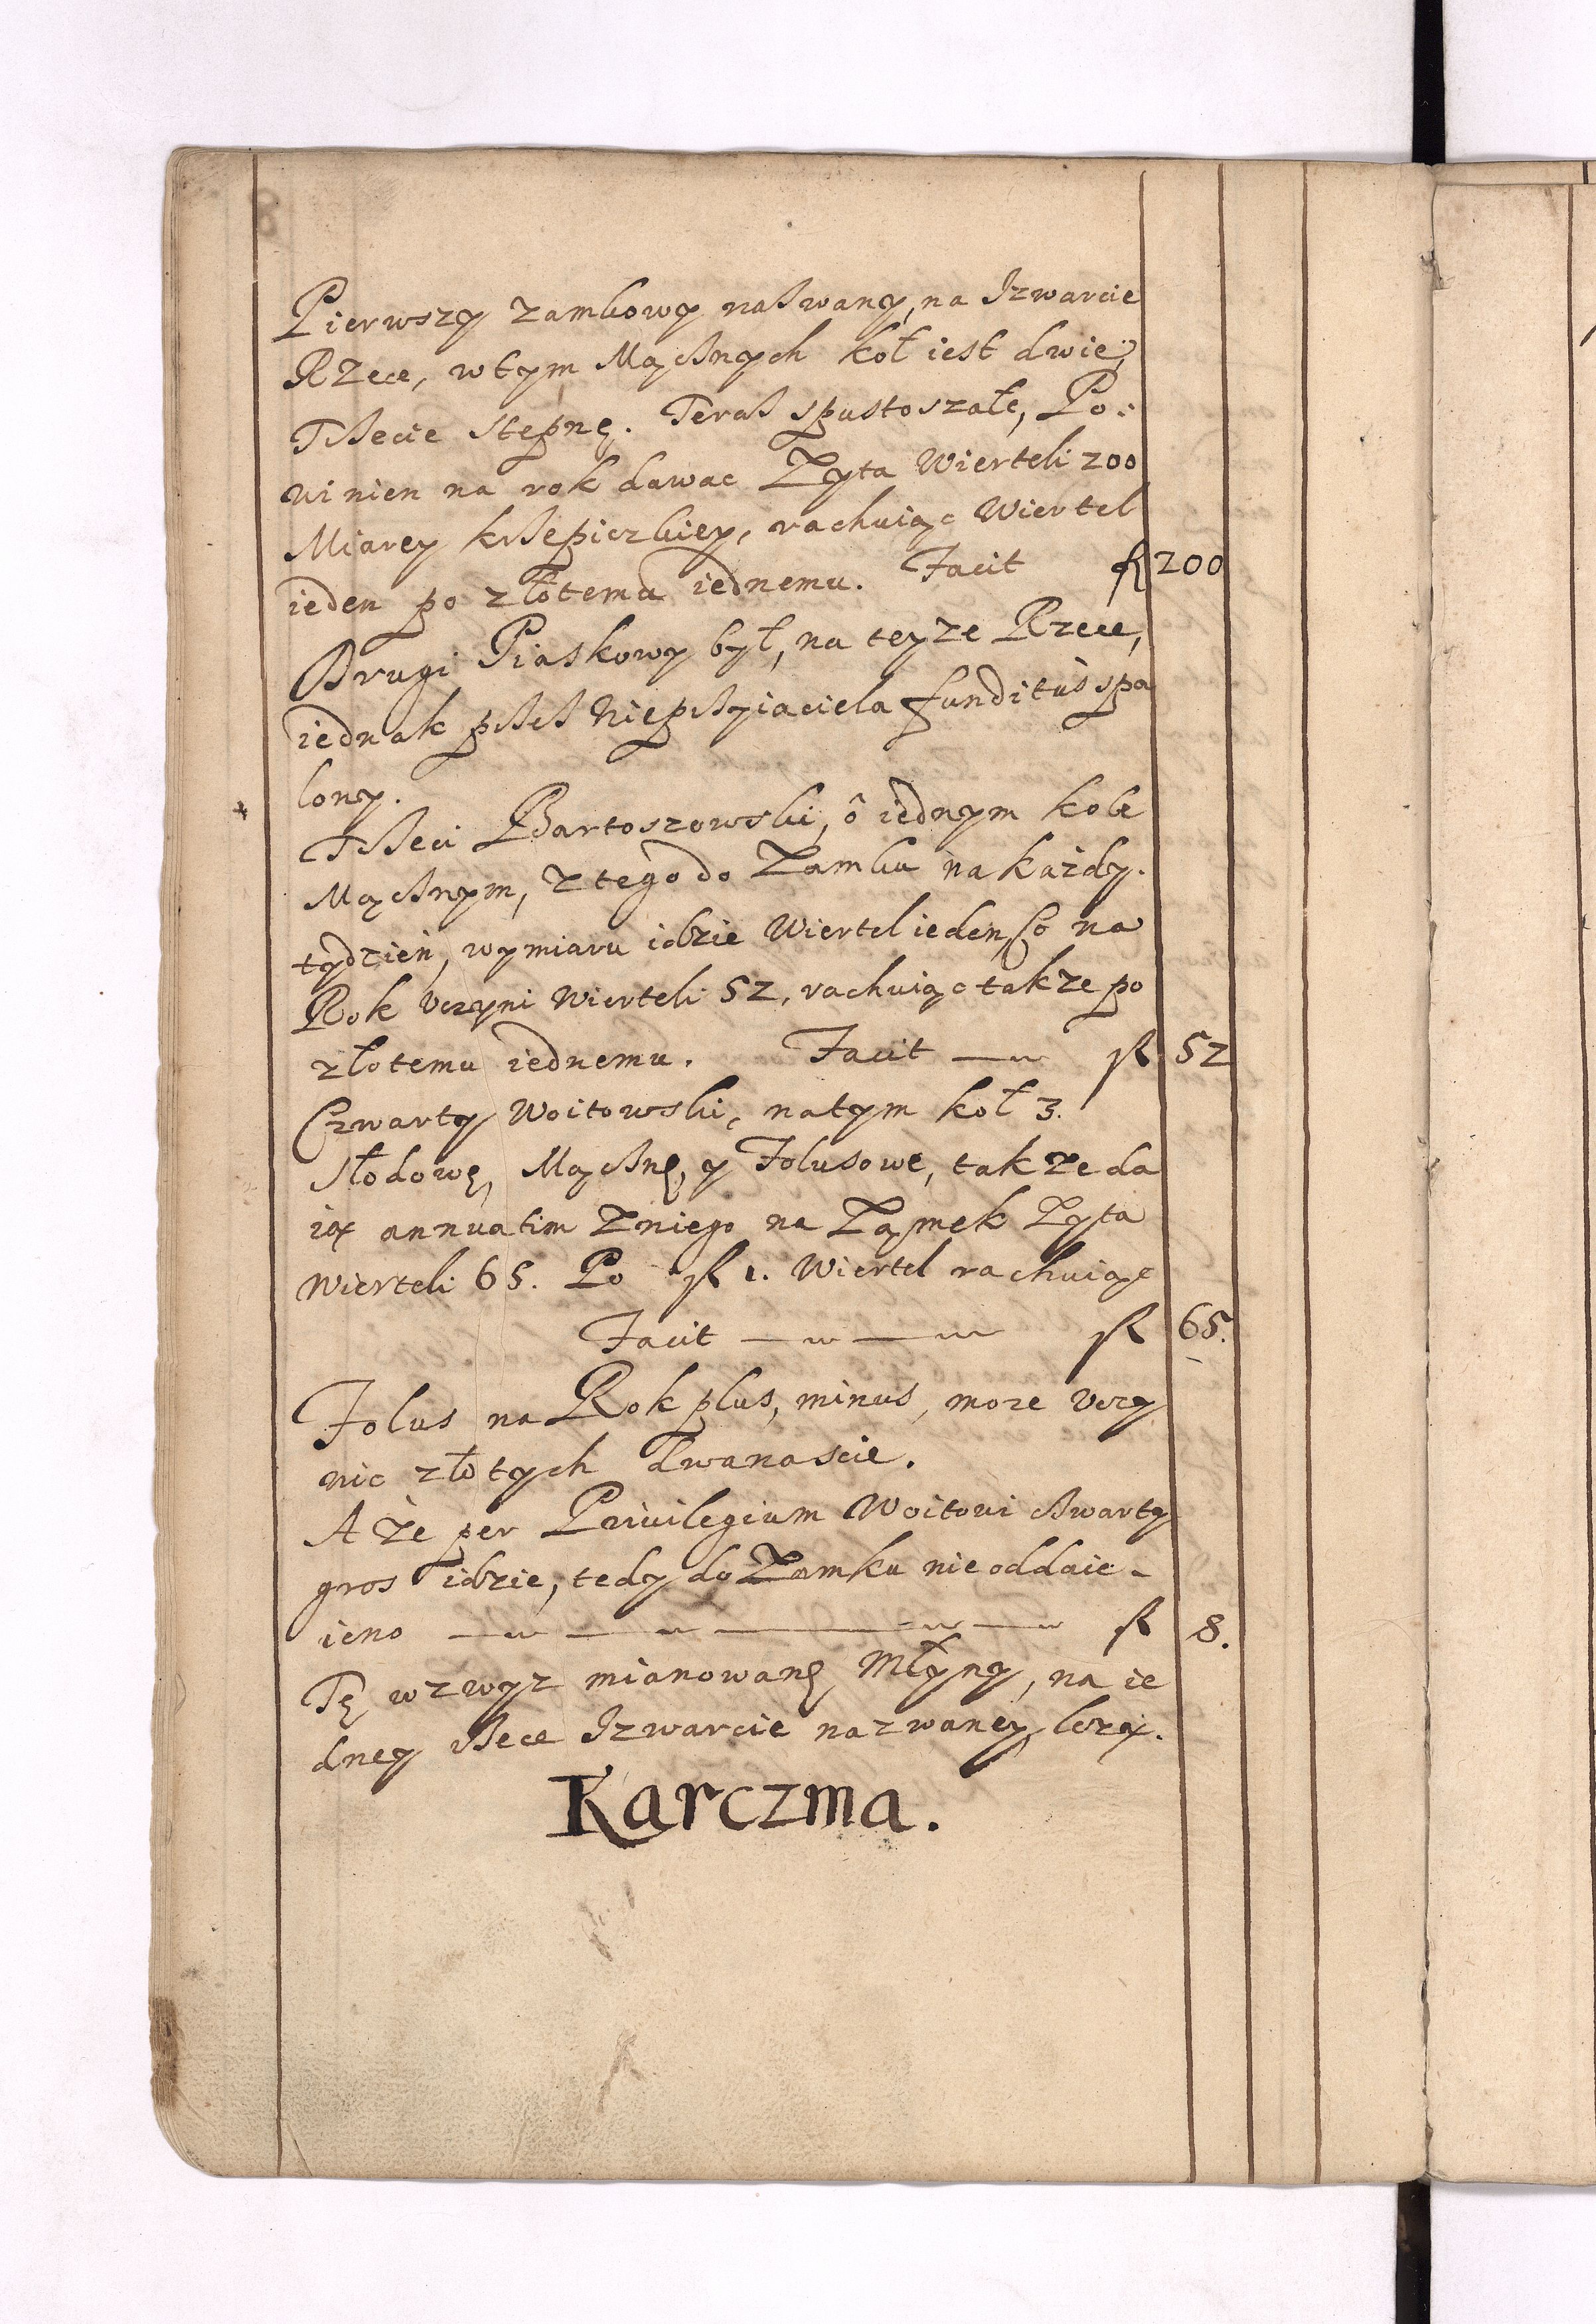 Pierwszy zamkowy nazwany, na Izwarcie
Rzece, w tym Mącznych koł iest dwie,
Trzecie stępnę. Teraz spustoszałe, Po:
winien na rok dawac Zyta Wierteli 200
Miarey krzepiczkiey, rachuiąc Wiertel
ieden po złotemu iednemu. Facit fl 200
Drugi Piaskowy był, na teyze Rzece,
iednak przez Nieprzyiaciela funditùs spa
lony.
Trzeci Bartoszowski, ô iednym kole
Mącznym, z tego do Zamku na każdy.
tydzień, wymiaru idzie Wiertel ieden, Co na
Rok vczyni Wierteli 52, rachuiąc takze po
złotemu iednemu. Facit fl 52
Czwarty Woitowski, na tym koł 3.
Słodowę, Mącznę, y Folusowe, takze da
ią annuatim z niego na Zamek Zyta
wierteli 65. Po fl 1. Wiertel rachuiąc
Facit fl 65.
Folus na Rok plus, minus, moze vczy
nic złotych dwanascie.
A że per Priuilegium Woitowi czwarty
gros idzie, tedy do Zamku nie oddaie-
ieno fl 8.
Tę wzwyz mianowanę Młyny, na ie
dney rzece Izwarcie nazwaney, lezą.
Karczma.